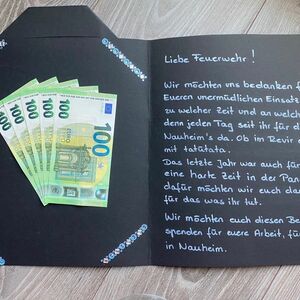 Liebe Feuerwehr!
Wir möchten uns bedanken f
Eueren unermüdlichen Einsatz
zu welcher Zeit und an welch
denn jeden Tag seit ihr für d
Nauheim's da. Ob im Revir
mit tatütata.
Das letzte Jahr war auch für
eine harte Zeit in der Pan
dafür möchten wir euch dan
für das was ihr tut.
Wir möchten euch diesen Be
spenden für euere Arbeit, fü
in Nauheim.
100
100
100
100
100
100
EURO